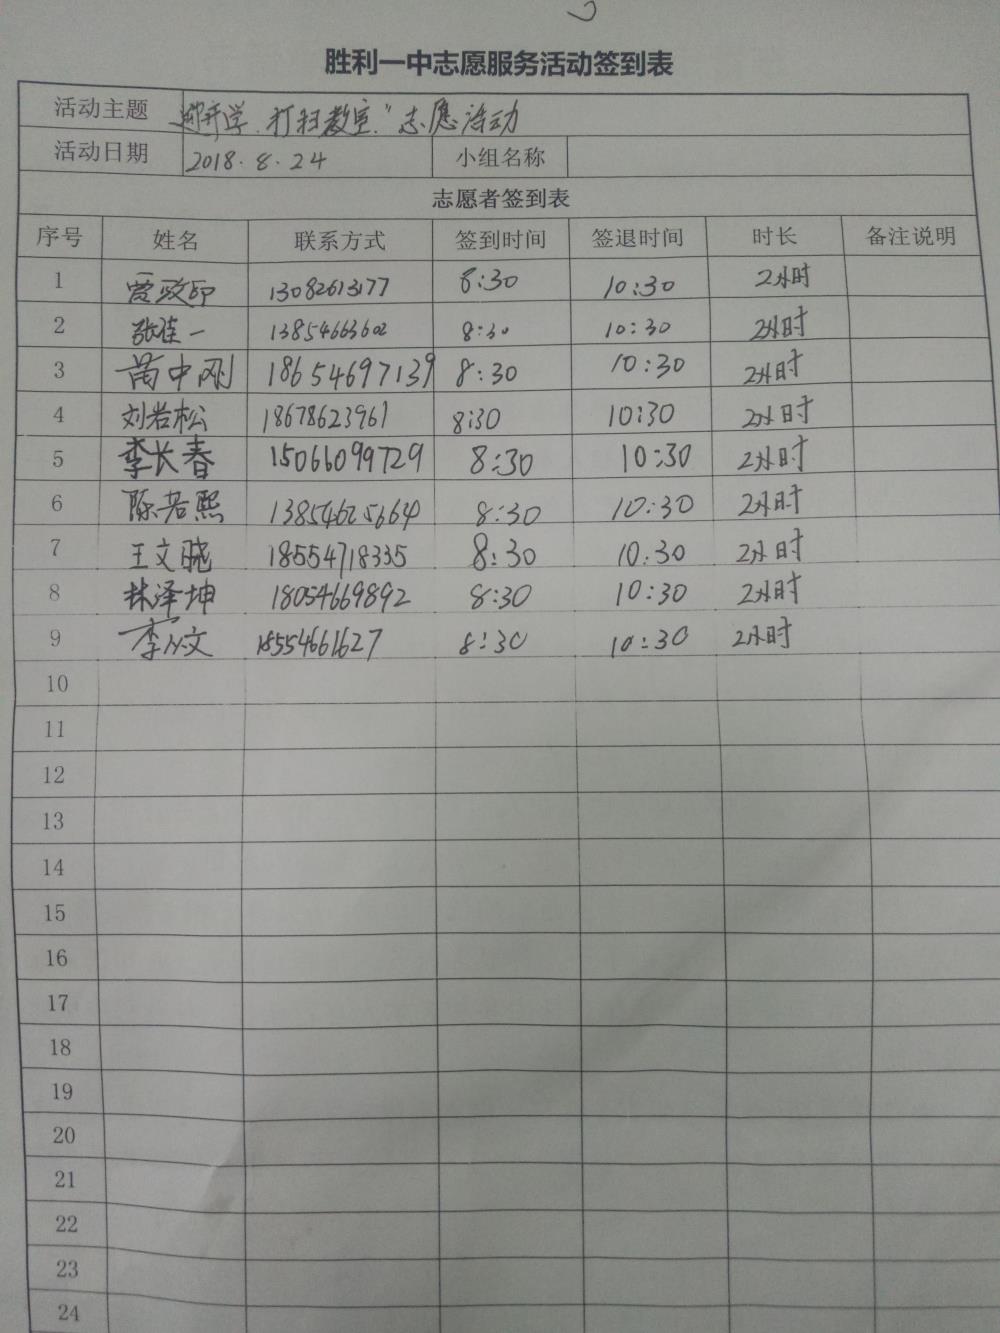 胜利一中志愿服务活动签到表
活动主题 迎开学、打扫教室"志愿活动
活动日期 2018.8.24 小组名称
志愿者签到表
序号 姓名 联系方式 签到时间 签退时间 时长 备注说明
1 贾政印 13082613177 8:30 10:30 2小时
2 张佳一 13854663602 8:30 10:30 2小时
3 中刚 18654697139 8:30 10:30 2小时
4 刘若松 18678623961 8:30 10:30 2小时
5 李长春 15066099729 8:30 10:30 2小时
6 陈若熙 13854625664 8:30 10:30 2小时
7 王文晓 18554718335 8:30 10:30 2小时
8 林泽坤 18054669892 8:30 10:30 2小时
9 李文 18554661627 8:30 10:30 2小时
10
11
12
13
14
15
16
17
18
19
20
21
22
23
24